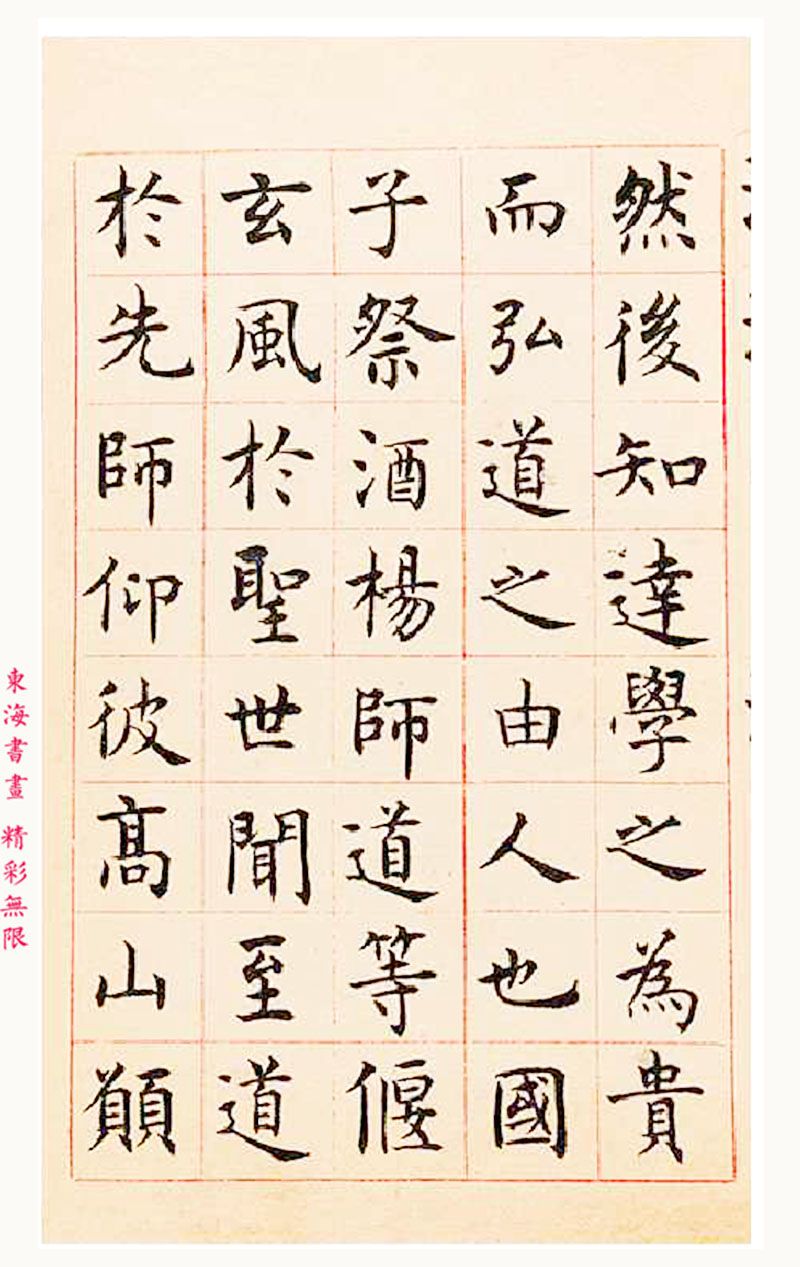 然後知達學之為貴
而弘道之由人也國
子祭酒楊師道等偃
玄風於聖世聞至道
於先師仰彼高山願
東海書畫 精彩無限